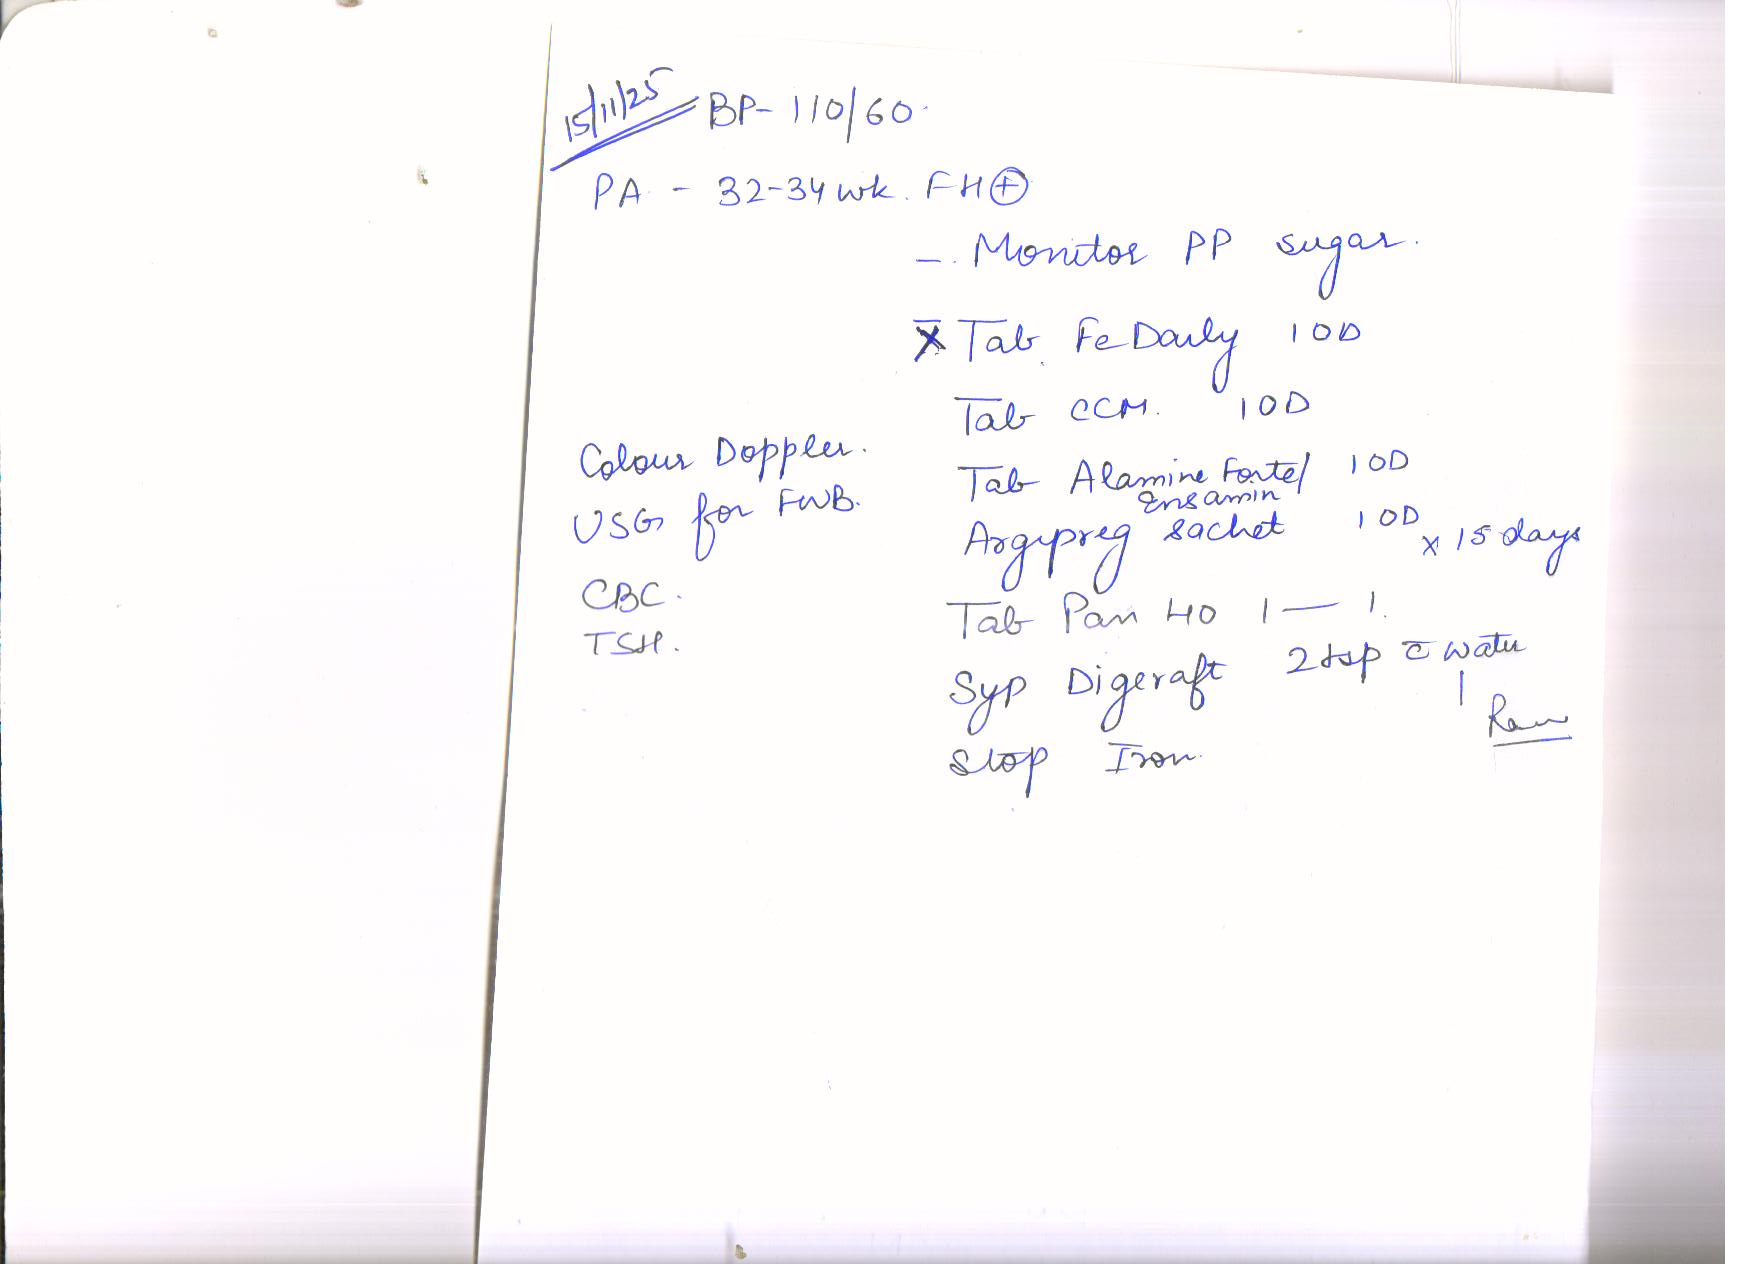 15/11/25 BP- 110/60
PA - 32-34 wk. FH⊕
- Monitor PP sugar.
x Tab Fe Daily 1 OD
Tab CCM. 1 OD
Colour Doppler.
USG for FWB.
CBC.
TSH.
Tab Alamine Forte/ 1 OD
Ensamin
Argipreg sachet 1 OD x 15 days
Tab Pan 40 1 — 1.
Syp Digeraft 2 tsp c̄ water
Stop Iron.